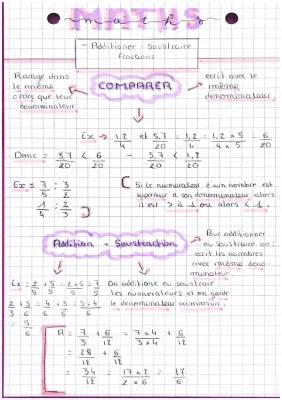 MATHS
maths
- Additionner - soustraire
fractions
Range dans
le même
ordre que leur
dénominateur
COMPARER
écrit avec le
même
dénominateur
Ex → 1,2/4 et 5,7/20 = 1,2/4 = 1,2 x 5/4 x 5 = 6/20
Donc = 5,7/20 < 6/20 - 5,7/20 < 1,2/20
Ex = 7/5 : 3/2
1/4 : 2/3
Si le numérateur d'un nombre est
supérieur à son dénominateur alors
il est > à 1 ou alors < 1.
Addition - Soustraction
Pour additionner
ou soustraire on :
écrit les nombres
avec même déno-
minateur
Ex : 2/9 + 5/9 = 2+5/9 = 7/9 On additionne ou soustrait
les numérateurs et on garde
le dénominateur commun.
2/3 + 5/6 = 4/6 + 5/6 = 5+4/6
= 9/6
A = 7/3 + 6/12 = 7x4/3x4 + 6/12
= 28/12 + 6/12
= 34/12 = 17x2/2x6 = 17/6